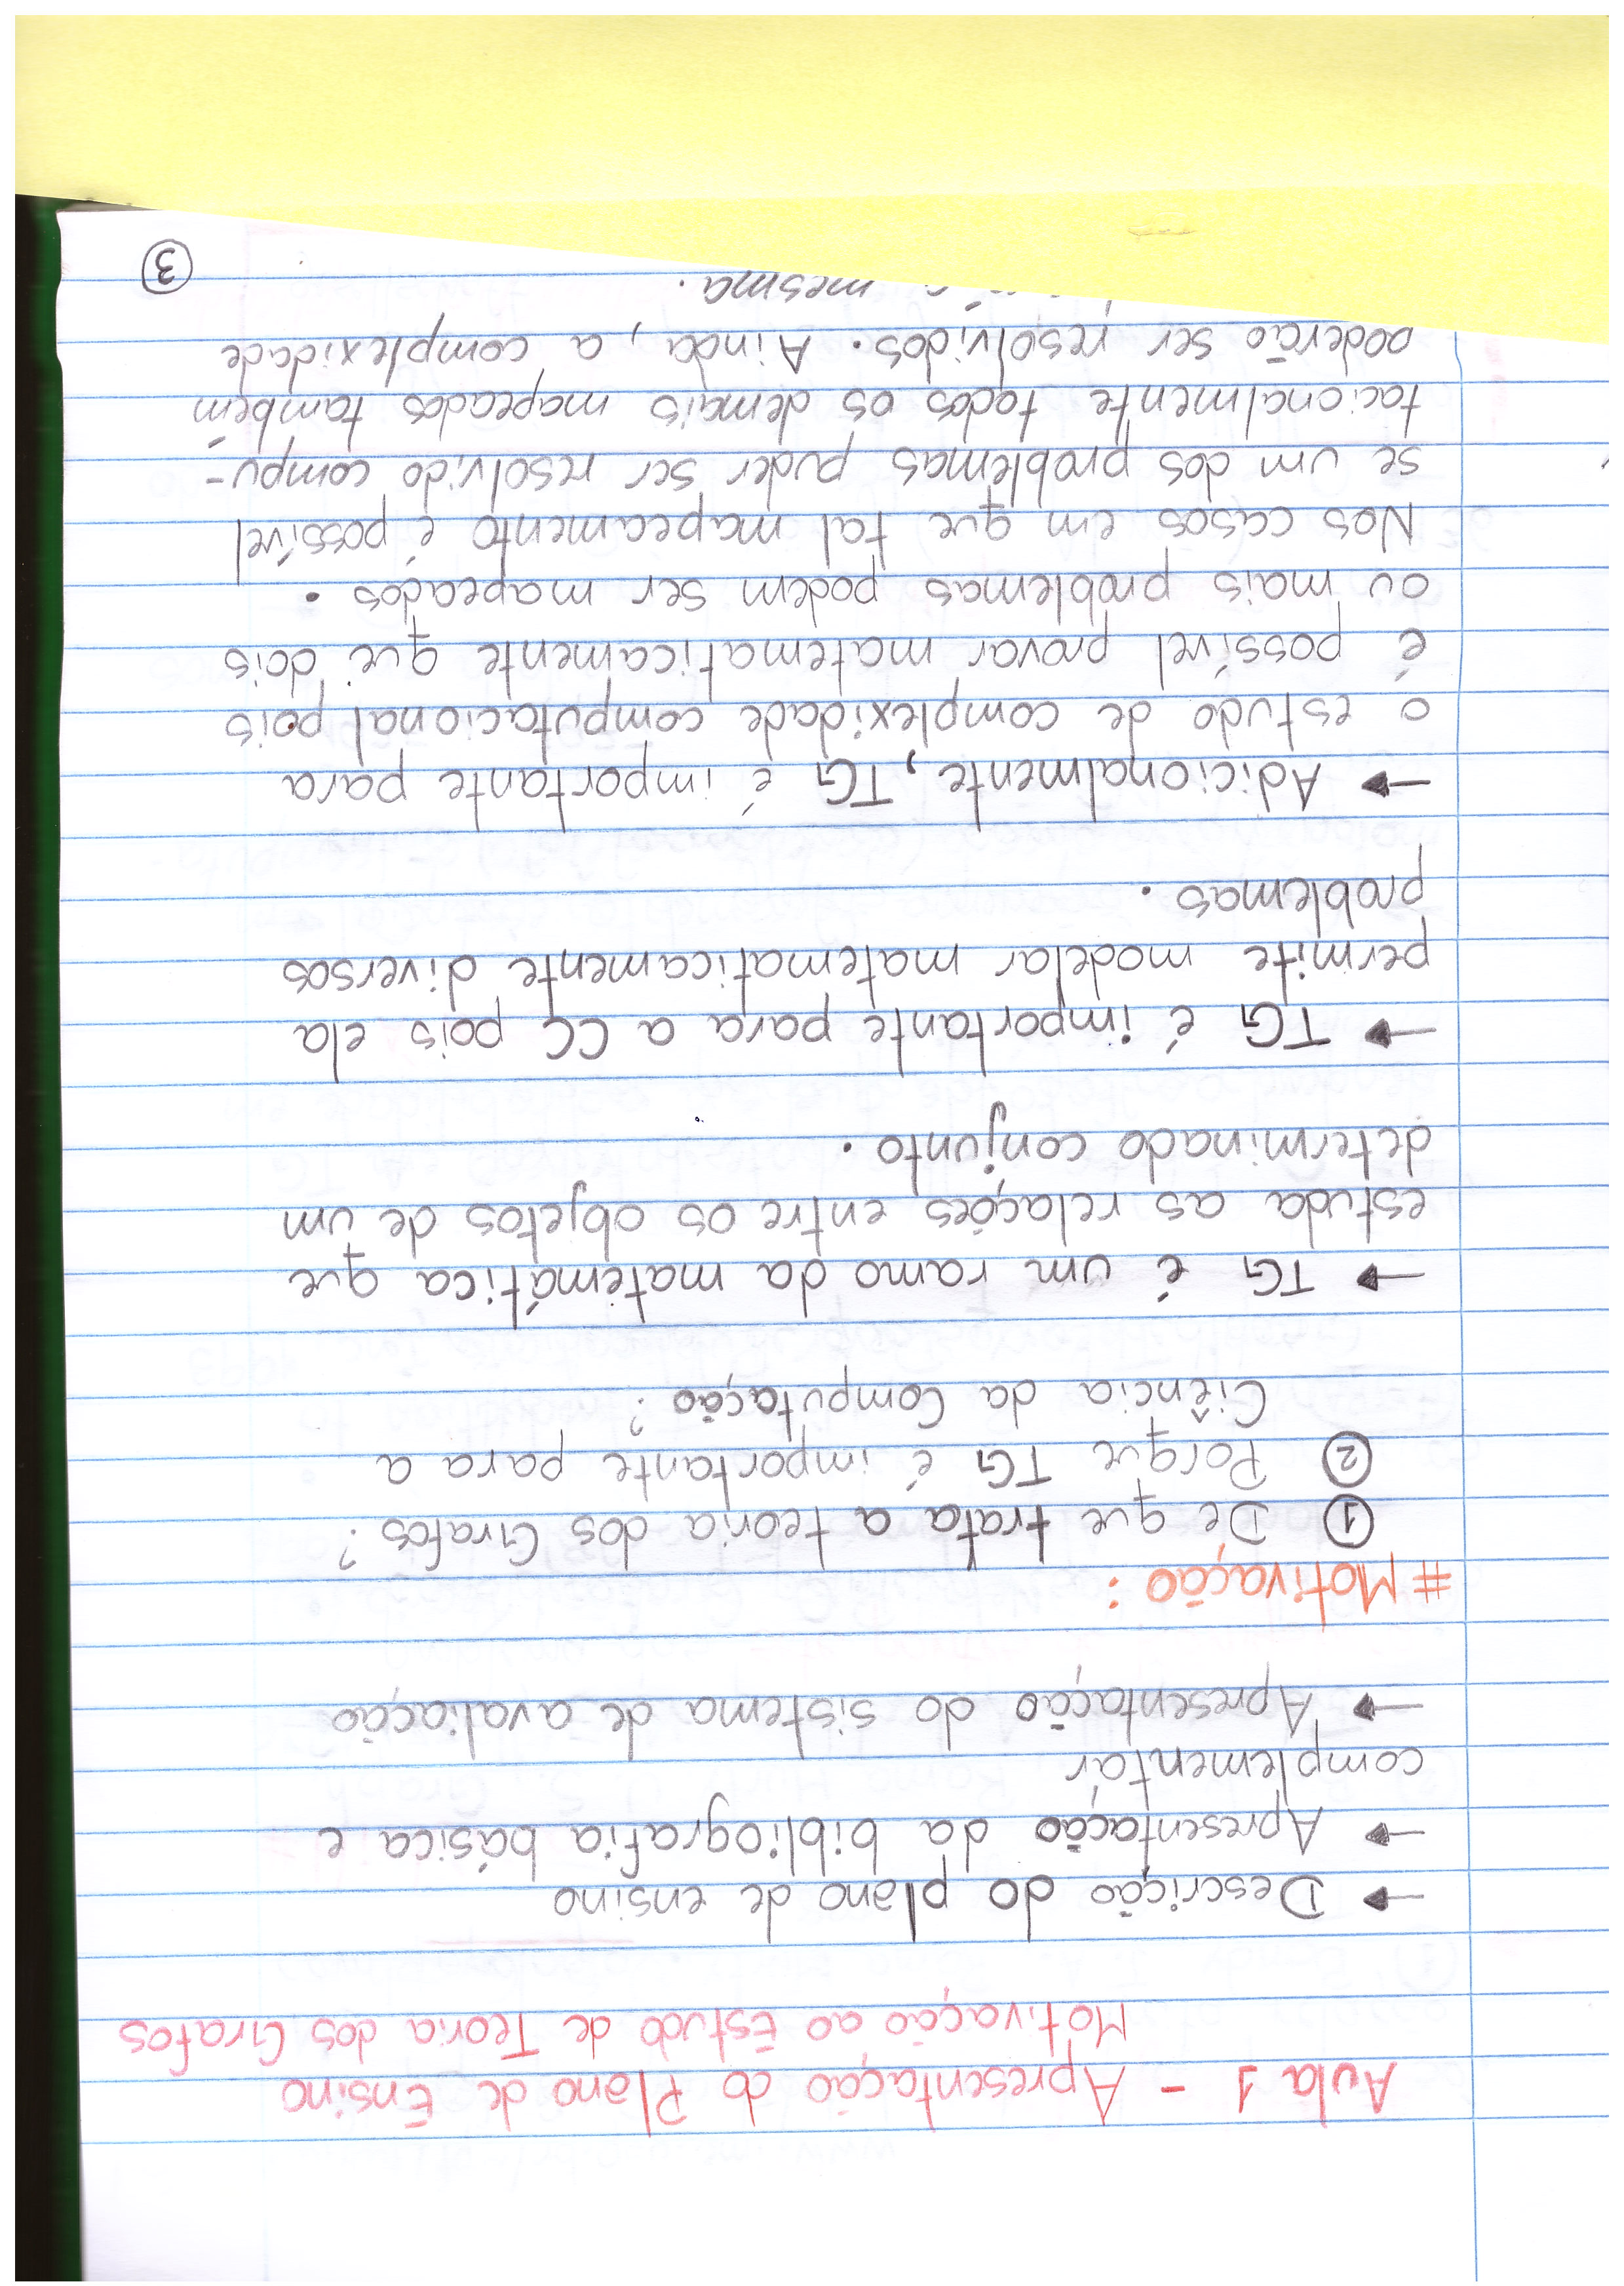 Aula 1 - Apresentação do Plano de Ensino
Motivação ao Estudo de Teoria dos Grafos
→ Descrição do plano de ensino
→ Apresentação da bibliografia básica e
complementar
→ Apresentação do sistema de avaliação
# Motivação:
① De que trata a teoria dos Grafos?
② Porque TG é importante para a
Ciência da Computação?
→ TG é um ramo da matemática que
estuda as relações entre os objetos de um
determinado conjunto.
→ TG é importante para a CC pois ela
permite modelar matematicamente diversos
problemas.
→ Adicionalmente, TG é importante para
o estudo de complexidade computacional pois
é possível provar matematicamente que dois
ou mais problemas podem ser mapeados.
Nos casos em que tal mapeamento é possível
se um dos problemas puder ser resolvido compu-
tacionalmente todos os demais mapeados também
poderão ser resolvidos. Ainda, a complexidade
mesma.
③